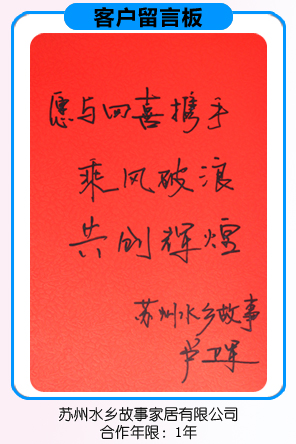 客户留言板
愿与四喜携手
乘风破浪
共创辉煌
苏州水乡故事
苏州水乡故事家居有限公司
合作年限：1年